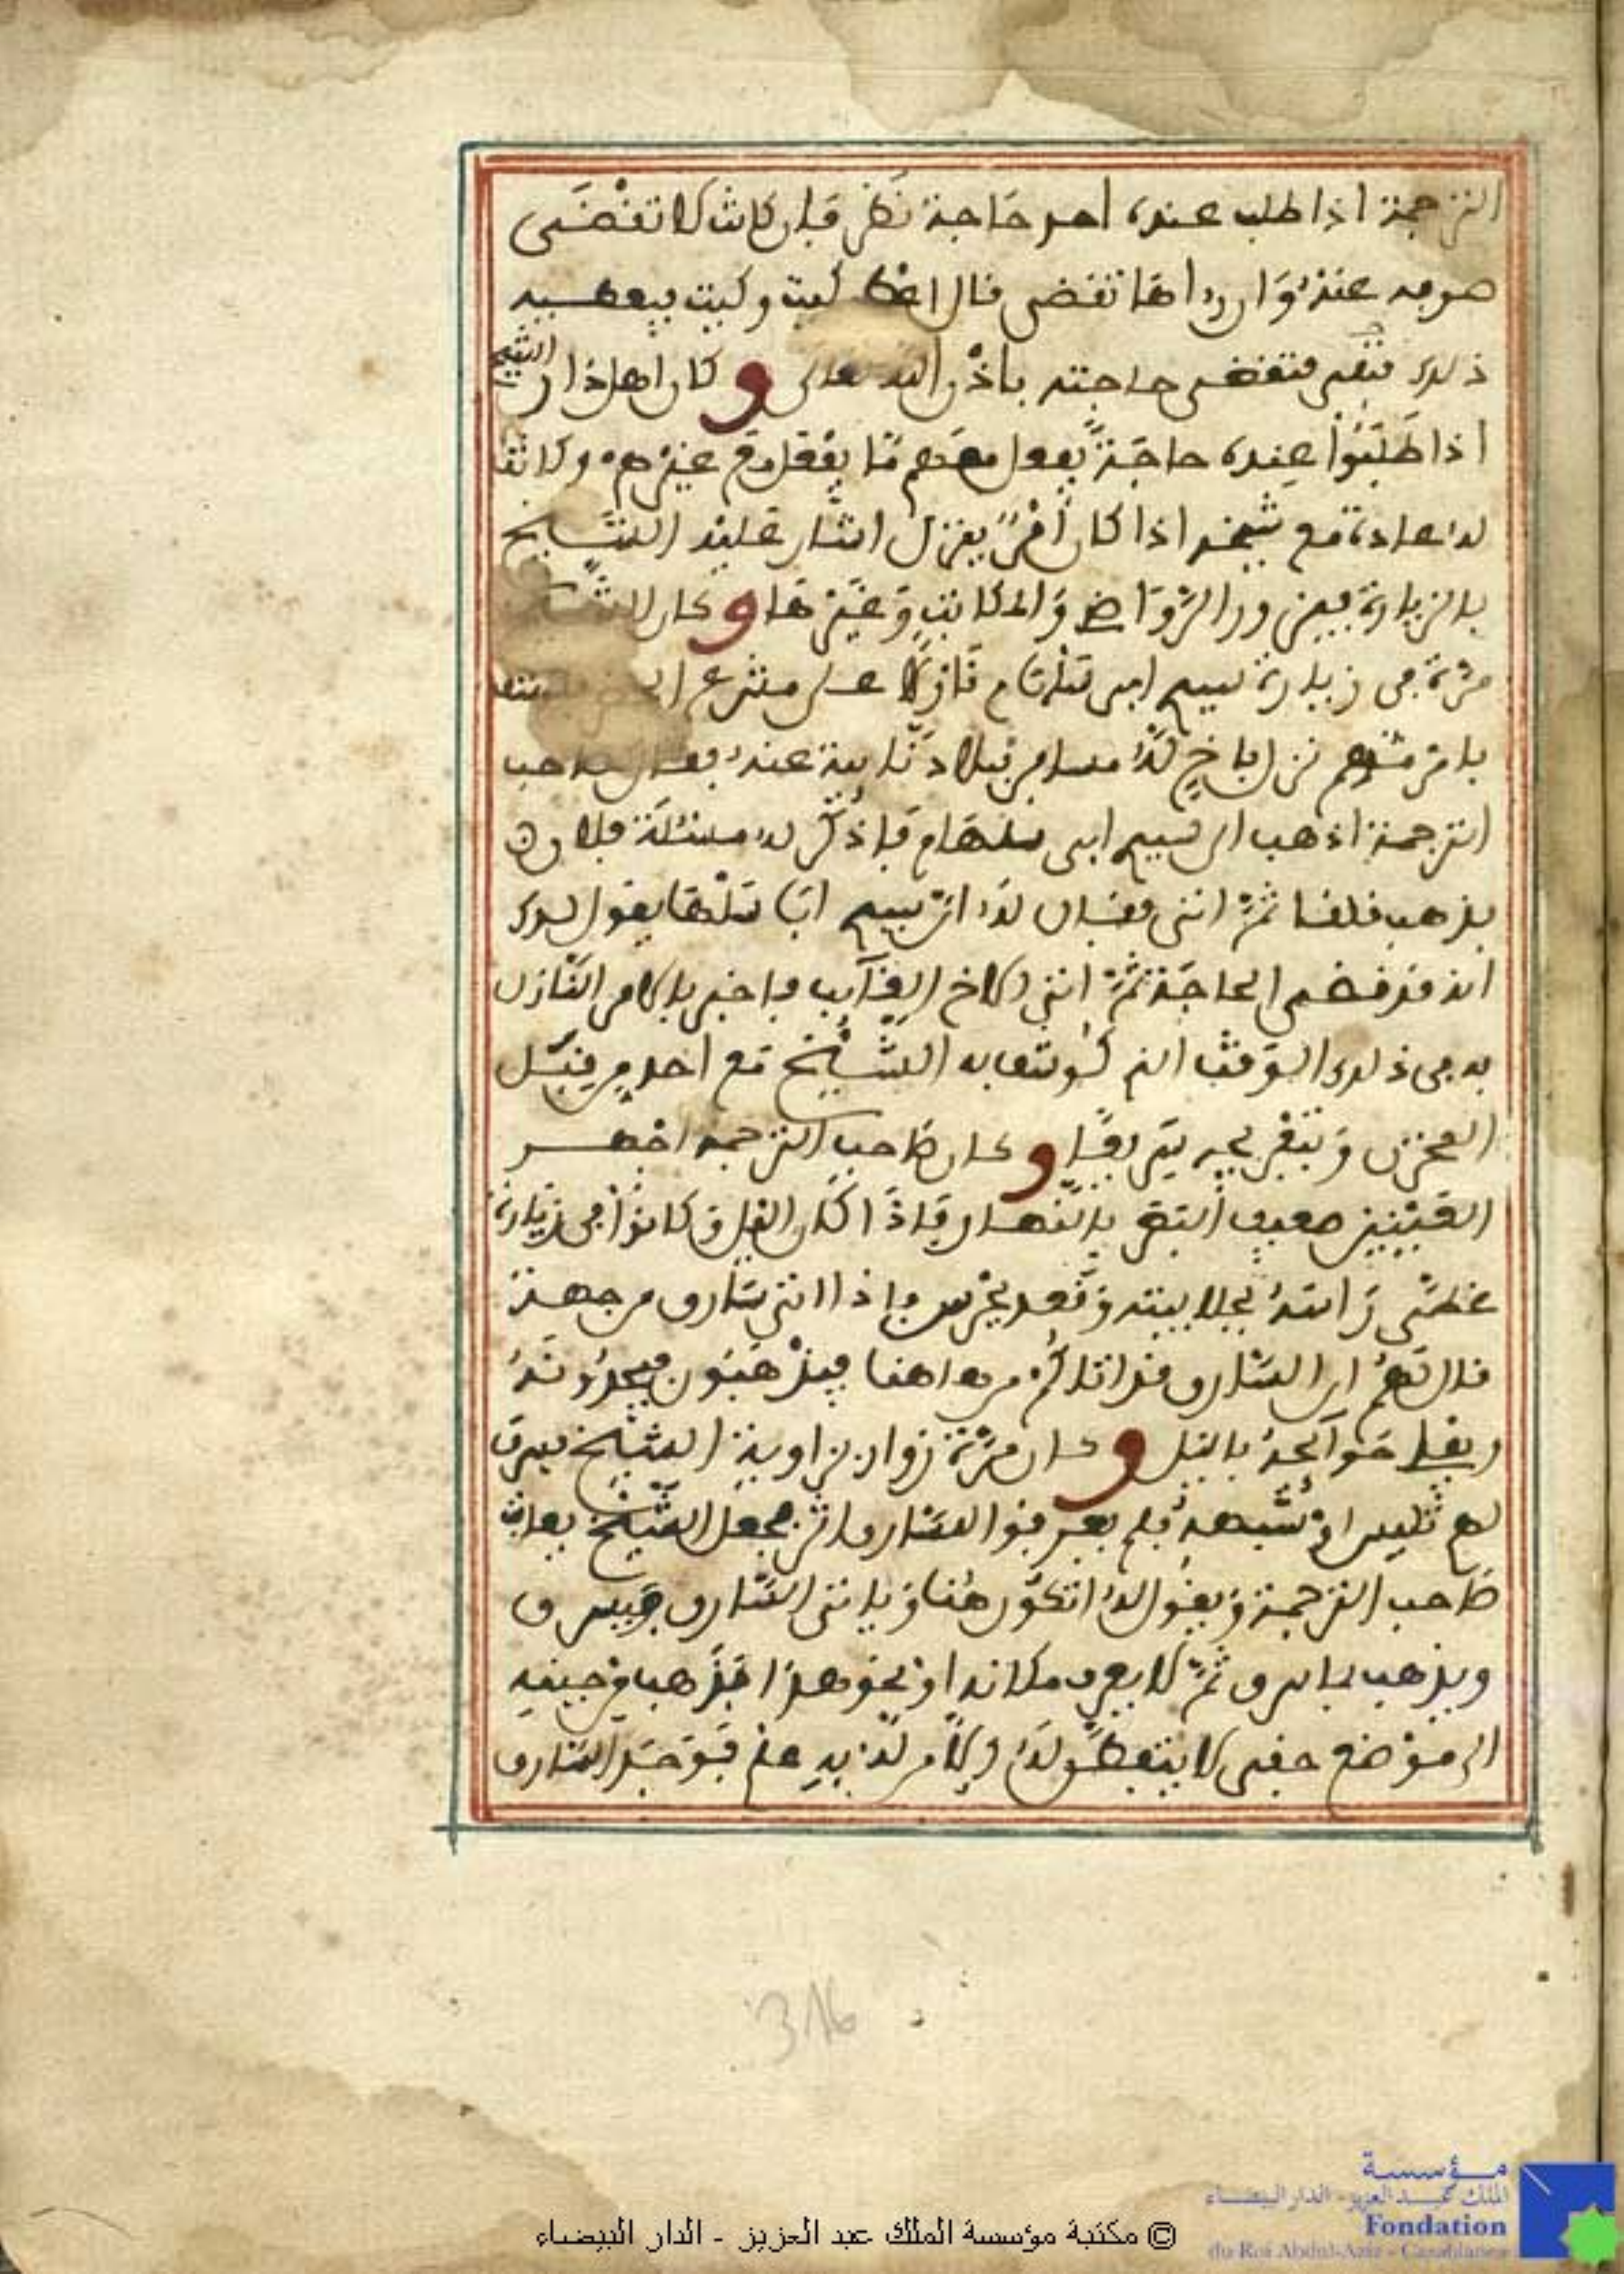 الترجمة اذا طلب عنده احد حاجة نظر فان كانت لا تقضى
صرفه عنه وان رءاها تقضى قال اعط كيت وكيت فيعطيه
ذلك فتقضى حاجته باذن الله تعالى وكان اهل دار الشيخ
اذا طلبوا عنده حاجة يفعل معهم ما يفعل مع غيرهم وكانت
له عادة مع شيخه اذا كان أمر ينزل اشار عليه الشيخ
بالزيارة فيزورا الروا وا وغيرها وكان الشيخ
مرة في زيارة سيدي ابي سلهام نازلا على مشرع
بامر مهم نزل باخ له مسافر ببلاد نايية عنه فقال لصاحب
الترجمة اذهب الى سيدي ابي سلهام فاذكر له مسئلة فلان
فذهب فلقا ثم اتى فقال له ان سيدي ابا سلها يقول لك
انه قد قضى الحاجة ثم اتى الاخ الغآيب فاخبر بالامر النازل
به في ذلك الوقت الذي توسل به الشيخ مع احد من قبل
المخزن وبتفريجه سريعا وكان صاحب الترجمة اجهر
العينين ضعيف البصر بالنهار فاذا كان الليل وكانوا في زيارة
غطى راسه بجلابيته وقعد يحرس واذا اتى سارق من جهة
قال لهم ان السارق قد اتاكم من هاهنا فيذهبون فيجدونه
ويفلي حوآيجه بالليل وكان مرة زوار بزاوية الشيخ فسرق
لهم تليس او شبهه فلم يعرفوا للسارق اثر فجعل الشيخ يعاتب
صاحب الترجمة ويقول له اتكون هنا وياتى السارق فيسرق
ويذهب بما سرق ثم لا يعرف مكانه او نحو هذا فذهب في حينه
الى موضع خفي لا يتفطن له ولا من له به علم فوجد السارق
316
مؤسسة
الملك عبد العزيز - الدار البيضاء
Fondation
du Roi Abdul-Aziz - Casablanca
© مكتبة مؤسسة الملك عبد العزيز - الدار البيضاء